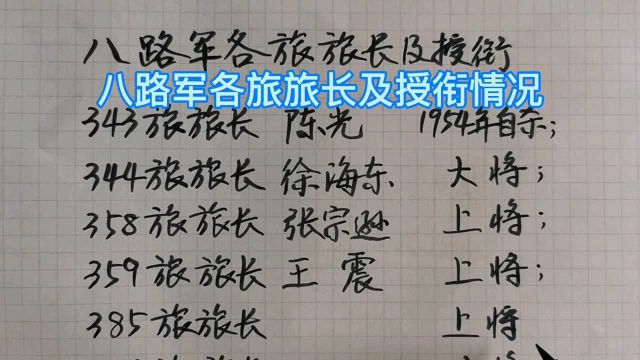 八路军各旅旅长及授衔
八路军各旅旅长及授衔情况
343旅旅长 陈光 1954年自杀;
344旅旅长 徐海东 大将;
358旅旅长 张宗逊 上将;
359旅旅长 王震 上将;
385旅旅长 上将